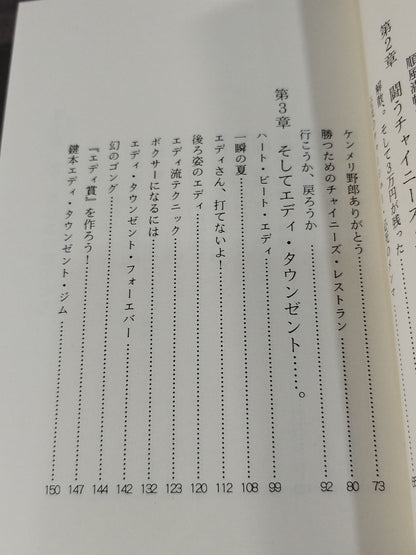 第2章 闘うチャイニーズ
解散。そして3万円が残った
ケンメリ野郎ありがとう……73
勝つためのチャイニーズ・レストラン……80
行こうか、戻ろうか……92
第3章 そしてエディ・タウンゼント……。
ハート・ビート・エディ……99
一瞬の夏……108
エディさん、打てないよ！……112
後ろ姿のエディ……120
エディ流テクニック……123
ボクサーになるには……132
エディ・タウンゼント・フォーエバー……142
幻のゴング……144
『エディ賞』を作ろう！……147
鍵本エディ・タウンゼント・ジム……150